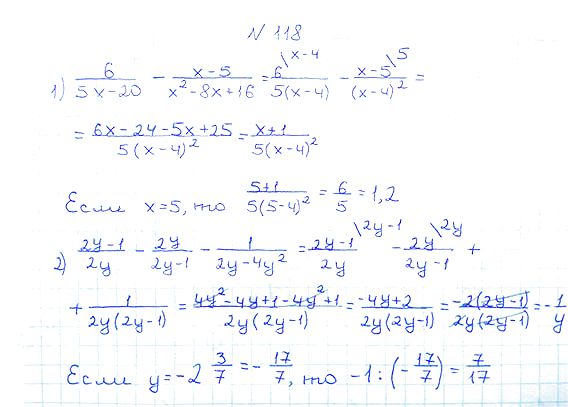 N 118
1) 6/(5x-20) - (x-5)/(x²-8x+16) = 6\x-4/(5(x-4)) - (x-5\5)/(x-4)² =
= (6x-24-5x+25)/(5(x-4)²) = (x+1)/(5(x-4)²)
Если x=5, то (5+1)/(5(5-4)²) = 6/5 = 1,2
2) (2y-1)/(2y) - 2y/(2y-1) - 1/(2y-4y²) = (2y-1\2y-1)/(2y) - (2y\2y)/(2y-1) +
+ 1/(2y(2y-1)) = (4y²-4y+1-4y²+1)/(2y(2y-1)) = (-4y+2)/(2y(2y-1)) = (-2(2y-1))/(2y(2y-1)) = -1/y
Если y=-2 3/7 = -17/7, то -1:(-17/7) = 7/17